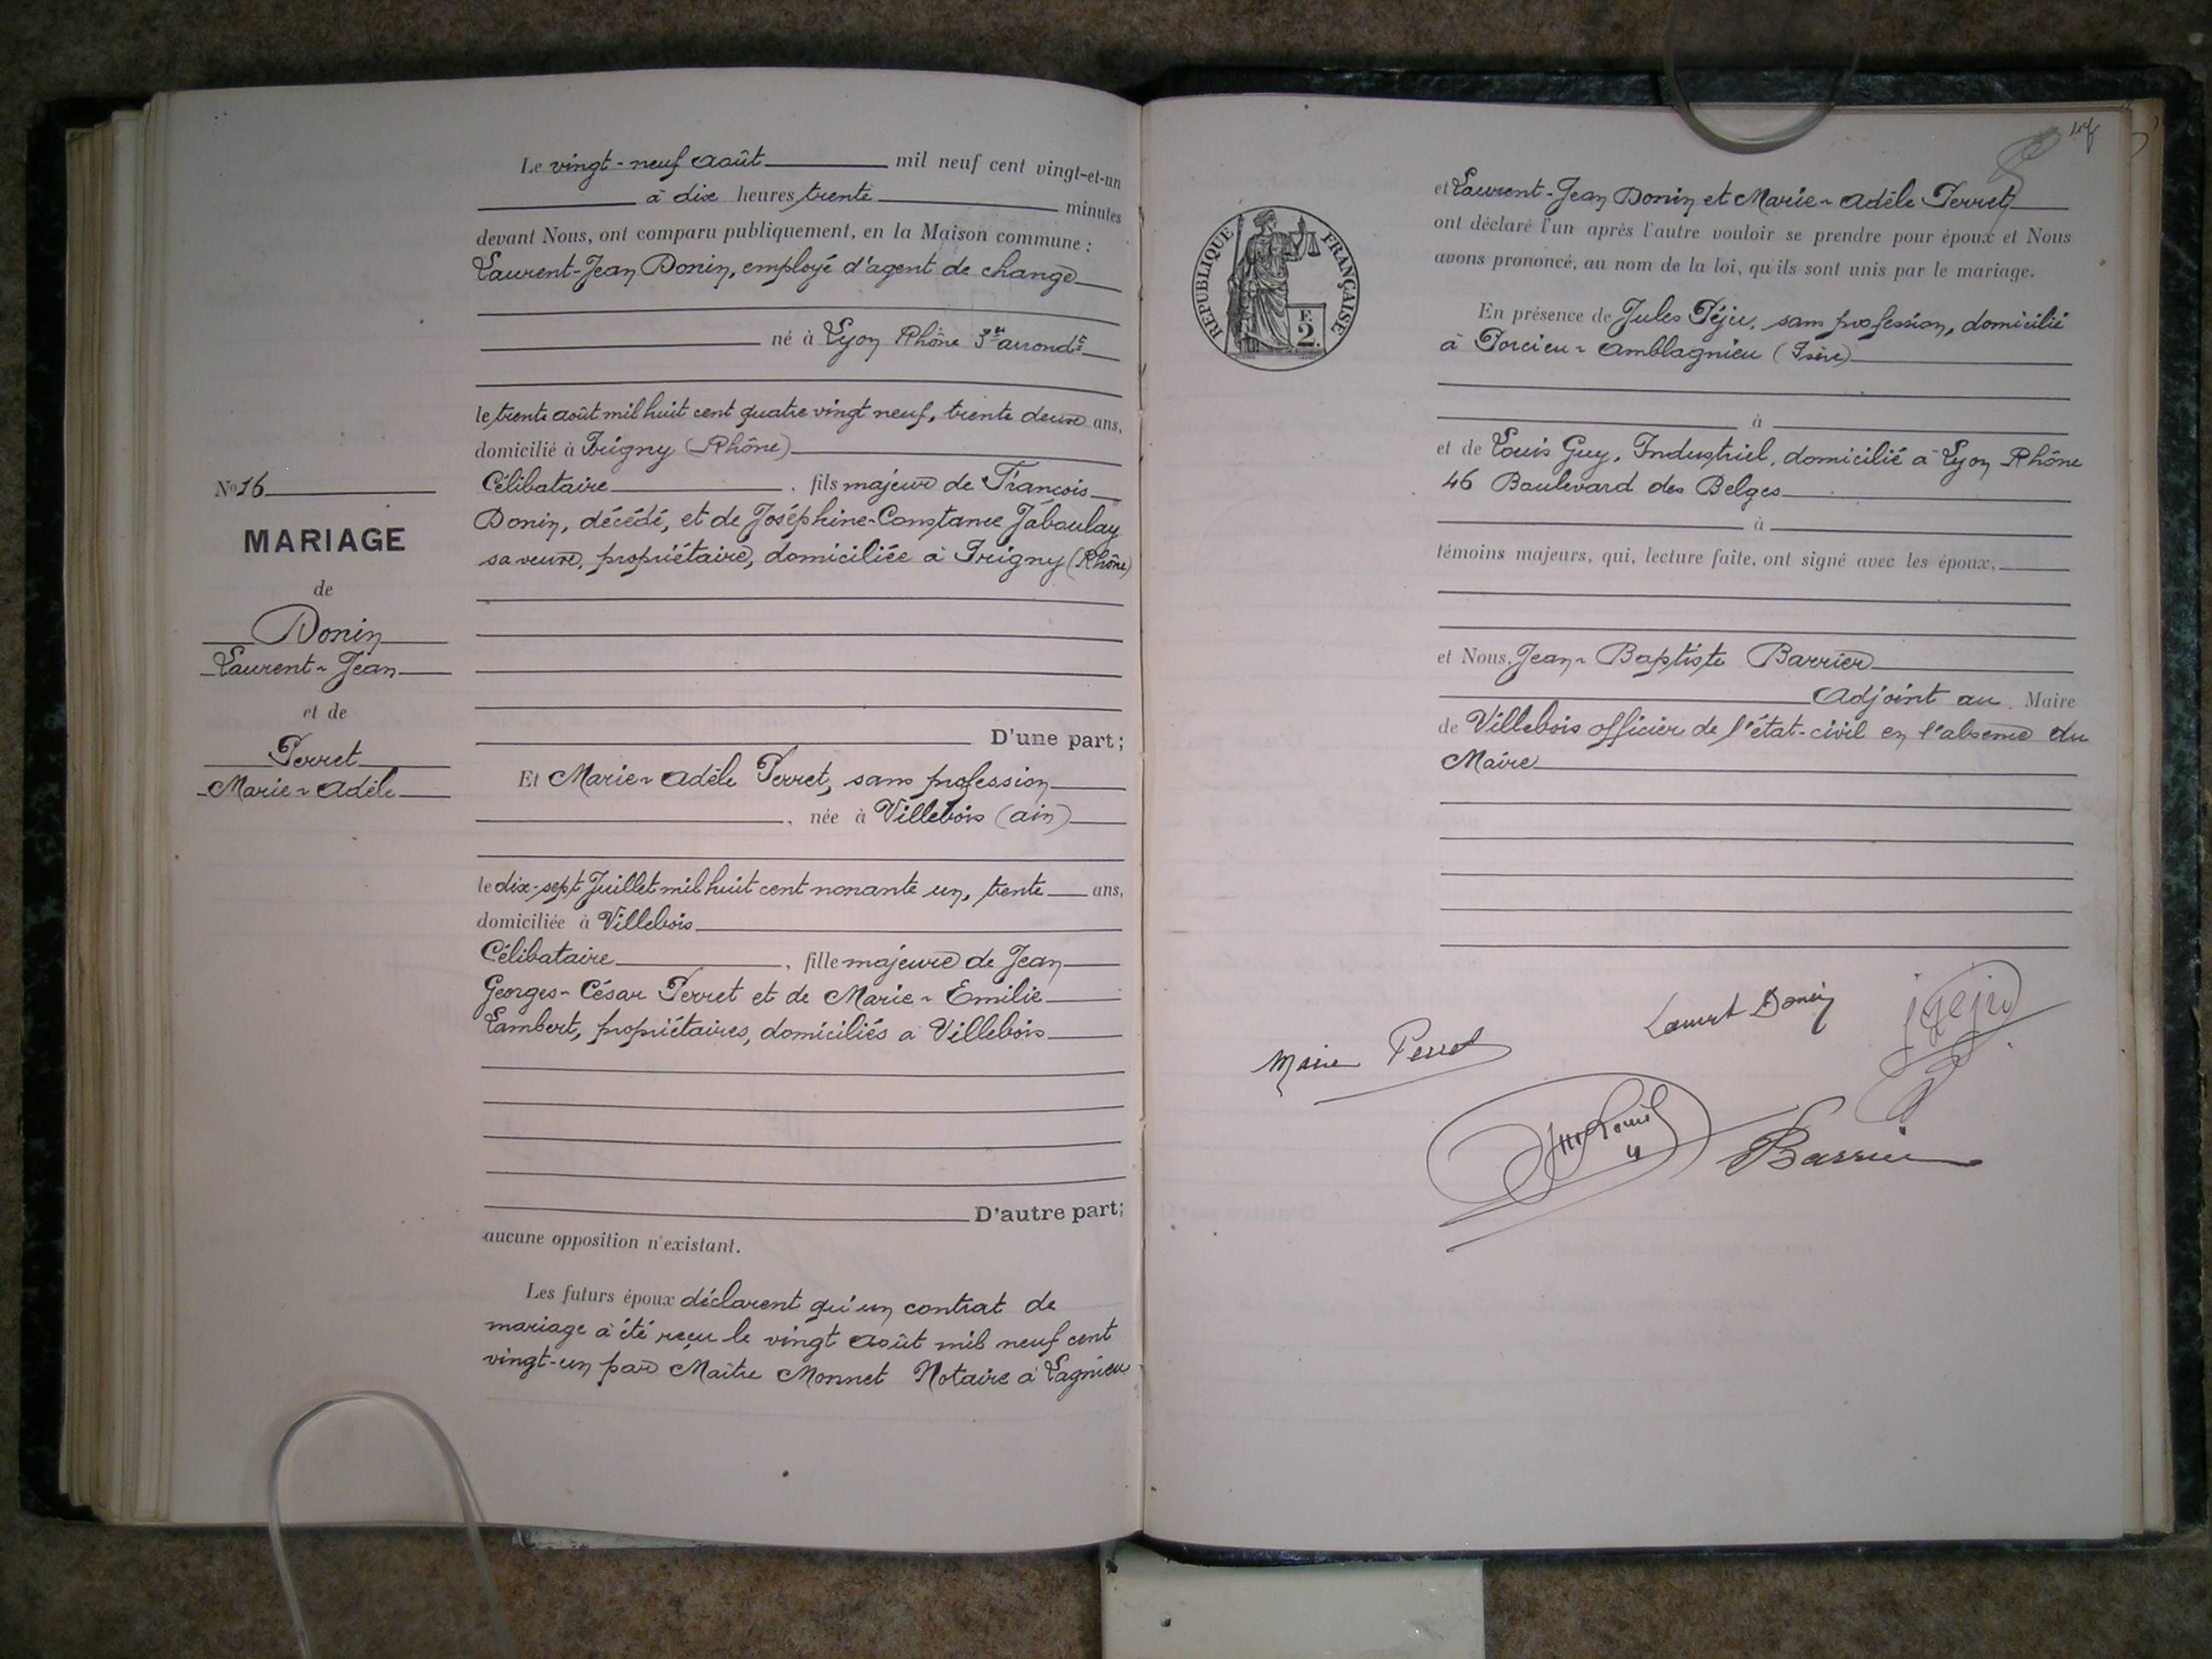 Le vingt-neuf août mil neuf cent vingt-et-un
à dix heures trente minutes
devant Nous, ont comparu publiquement, en la Maison commune :
Laurent-Jean Donin, employé d'agent de change
né à Lyon Rhône 3me arrondt
le trente août mil huit cent quatre vingt neuf, trente deux ans,
domicilié à Irigny (Rhône)
Célibataire, fils majeur de François
Donin, décédé, et de Joséphine-Constance Jaboulay
sa veuve, propriétaire, domiciliée à Irigny (Rhône)
D'une part;
Et Marie-Adèle Perret, sans profession
, née à Villebois (ain)
le dix-sept Juillet mil huit cent nonante un, trente ans,
domiciliée à Villebois
Célibataire, fille majeure de Jean
Georges-César Perret et de Marie-Emilie
Lambert, propriétaires, domiciliés à Villebois
D'autre part;
aucune opposition n'existant.
Les futurs époux déclarent qu'un contrat de
mariage à été reçu le vingt août mil neuf cent
vingt-un par Maître Monnet Notaire à Lagnieu
N° 16
MARIAGE
de
Donin
Laurent-Jean
et de
Perret
Marie-Adèle
RÉPUBLIQUE FRANÇAISE
F.
2.
et Laurent-Jean Donin et Marie-Adèle Perret
ont déclaré l'un après l'autre vouloir se prendre pour époux et Nous
avons prononcé, au nom de la loi, qu'ils sont unis par le mariage.
En présence de Jules Péju, sans profession, domicilié
à Porcieu-Amblagnieu (Isère)
à
et de Louis Guy, Industriel, domicilié à Lyon Rhône
46 Boulevard des Belges
à
témoins majeurs, qui, lecture faite, ont signé avec les époux,
et Nous, Jean-Baptiste Barrier
Adjoint au Maire
de Villebois officier de l'état-civil en l'absence du
Maire
Marie Perret
Laurent Donin
Barrier